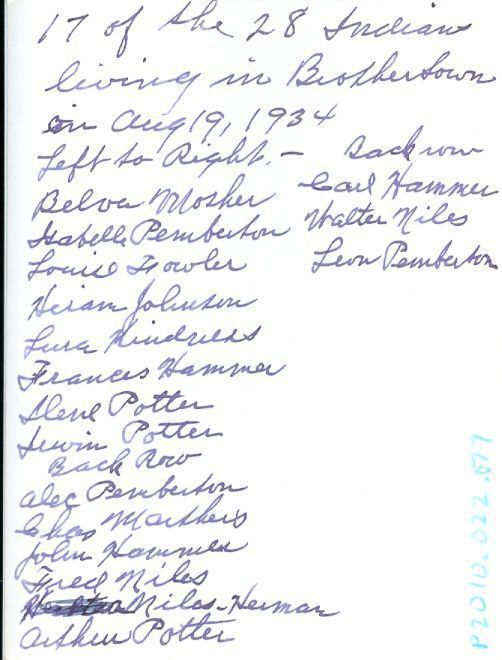 17 of the 28 Indians
living in Brothertown
on Aug 19, 1934
Left to Right. –
Belva Mosher
Isabelle Pemberton
Louise Fowler
Hiram Johnson
Lura Kindness
Frances Hammer
Ilene Potter
Irwin Potter
Back Row
Alec Pemberton
Chas Mathers
John Hammer
Fred Niles
Niles-Herman
Arthur Potter
Back row
Carl Hammer
Walter Niles
Leon Pemberton
P2010.022.077